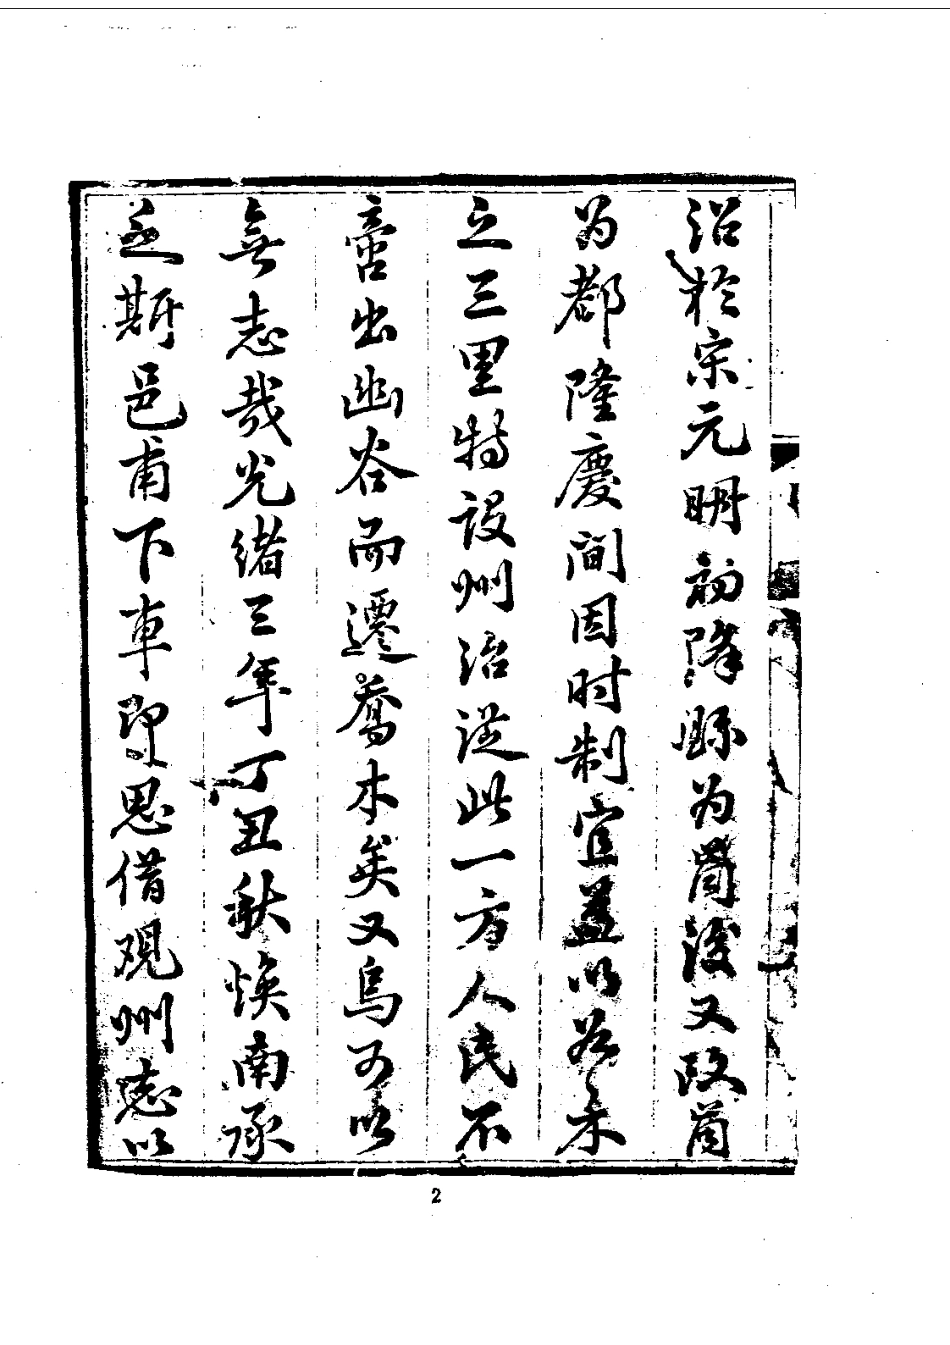 沿於宋元明初降縣為罱後又改茼
為都隆慶間因时制宜盖以谷禾
之三里特設州治從此一方人民不
啻出幽谷而遷喬木矣又烏可以
無志哉光緒三年丁丑秋煥南承
乏斯邑甫下車即思借观州志以
2